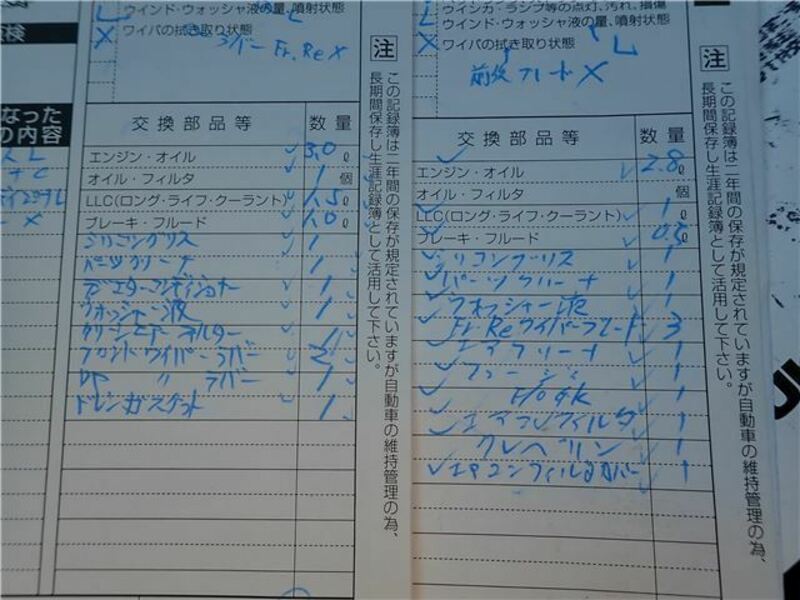 検
なった
の内容
ウインド・ウォッシャ液の量、噴射状態
L
X ワイパの拭き取り状態
ラバー Fr. Re X
交換部品等 数量
エンジン・オイル 3.0 ℓ
オイル・フィルタ 1 個
LLC(ロング・ライフ・クーラント) 1.5 ℓ
ブレーキ・フルード 1.0 ℓ
シリコングリス 1
パーツクリーナ 1
ラジエターコンディショナー 1
ウオッシャー液 1
クリーンエアーフィルター 1
フロントワイパーラバー 2
〃 ラバー 1
ドレンガスケット 1
注
この記録簿は二年間の保存が規定されていますが自動車の維持管理の為、
長期間保存し生涯記録簿として活用して下さい。
ウインド・ウォッシャ液の量、噴射状態
L
X ワイパの拭き取り状態
L
前後ブレード X
交換部品等 数量
エンジン・オイル 2.8 ℓ
オイル・フィルタ 個
LLC(ロング・ライフ・クーラント) 1 ℓ
ブレーキ・フルード 0.5 ℓ
シリコングリス 1
パーツクリーナ 1
ウオッシャー液 1
Fr. Reワイパーブレード 3
エアクリーナ 1
1
1
エアコンフィルタ 1
クレベリン 1
エアコンフィルタカバー 1
注
この記録簿は二年間の保存が規定されていますが自動車の維持管理の為、
長期間保存し生涯記録簿として活用して下さい。